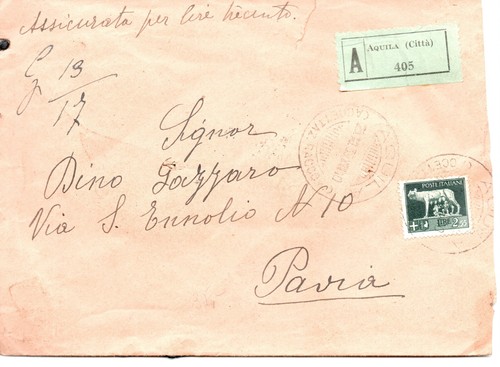 Assicurata per lire trecento.
A
AQUILA (Città)
405
G 13
17
Signor
Dino Gazzaro
Via S. Ennolio N 10
POSTE ITALIANE
Pavia